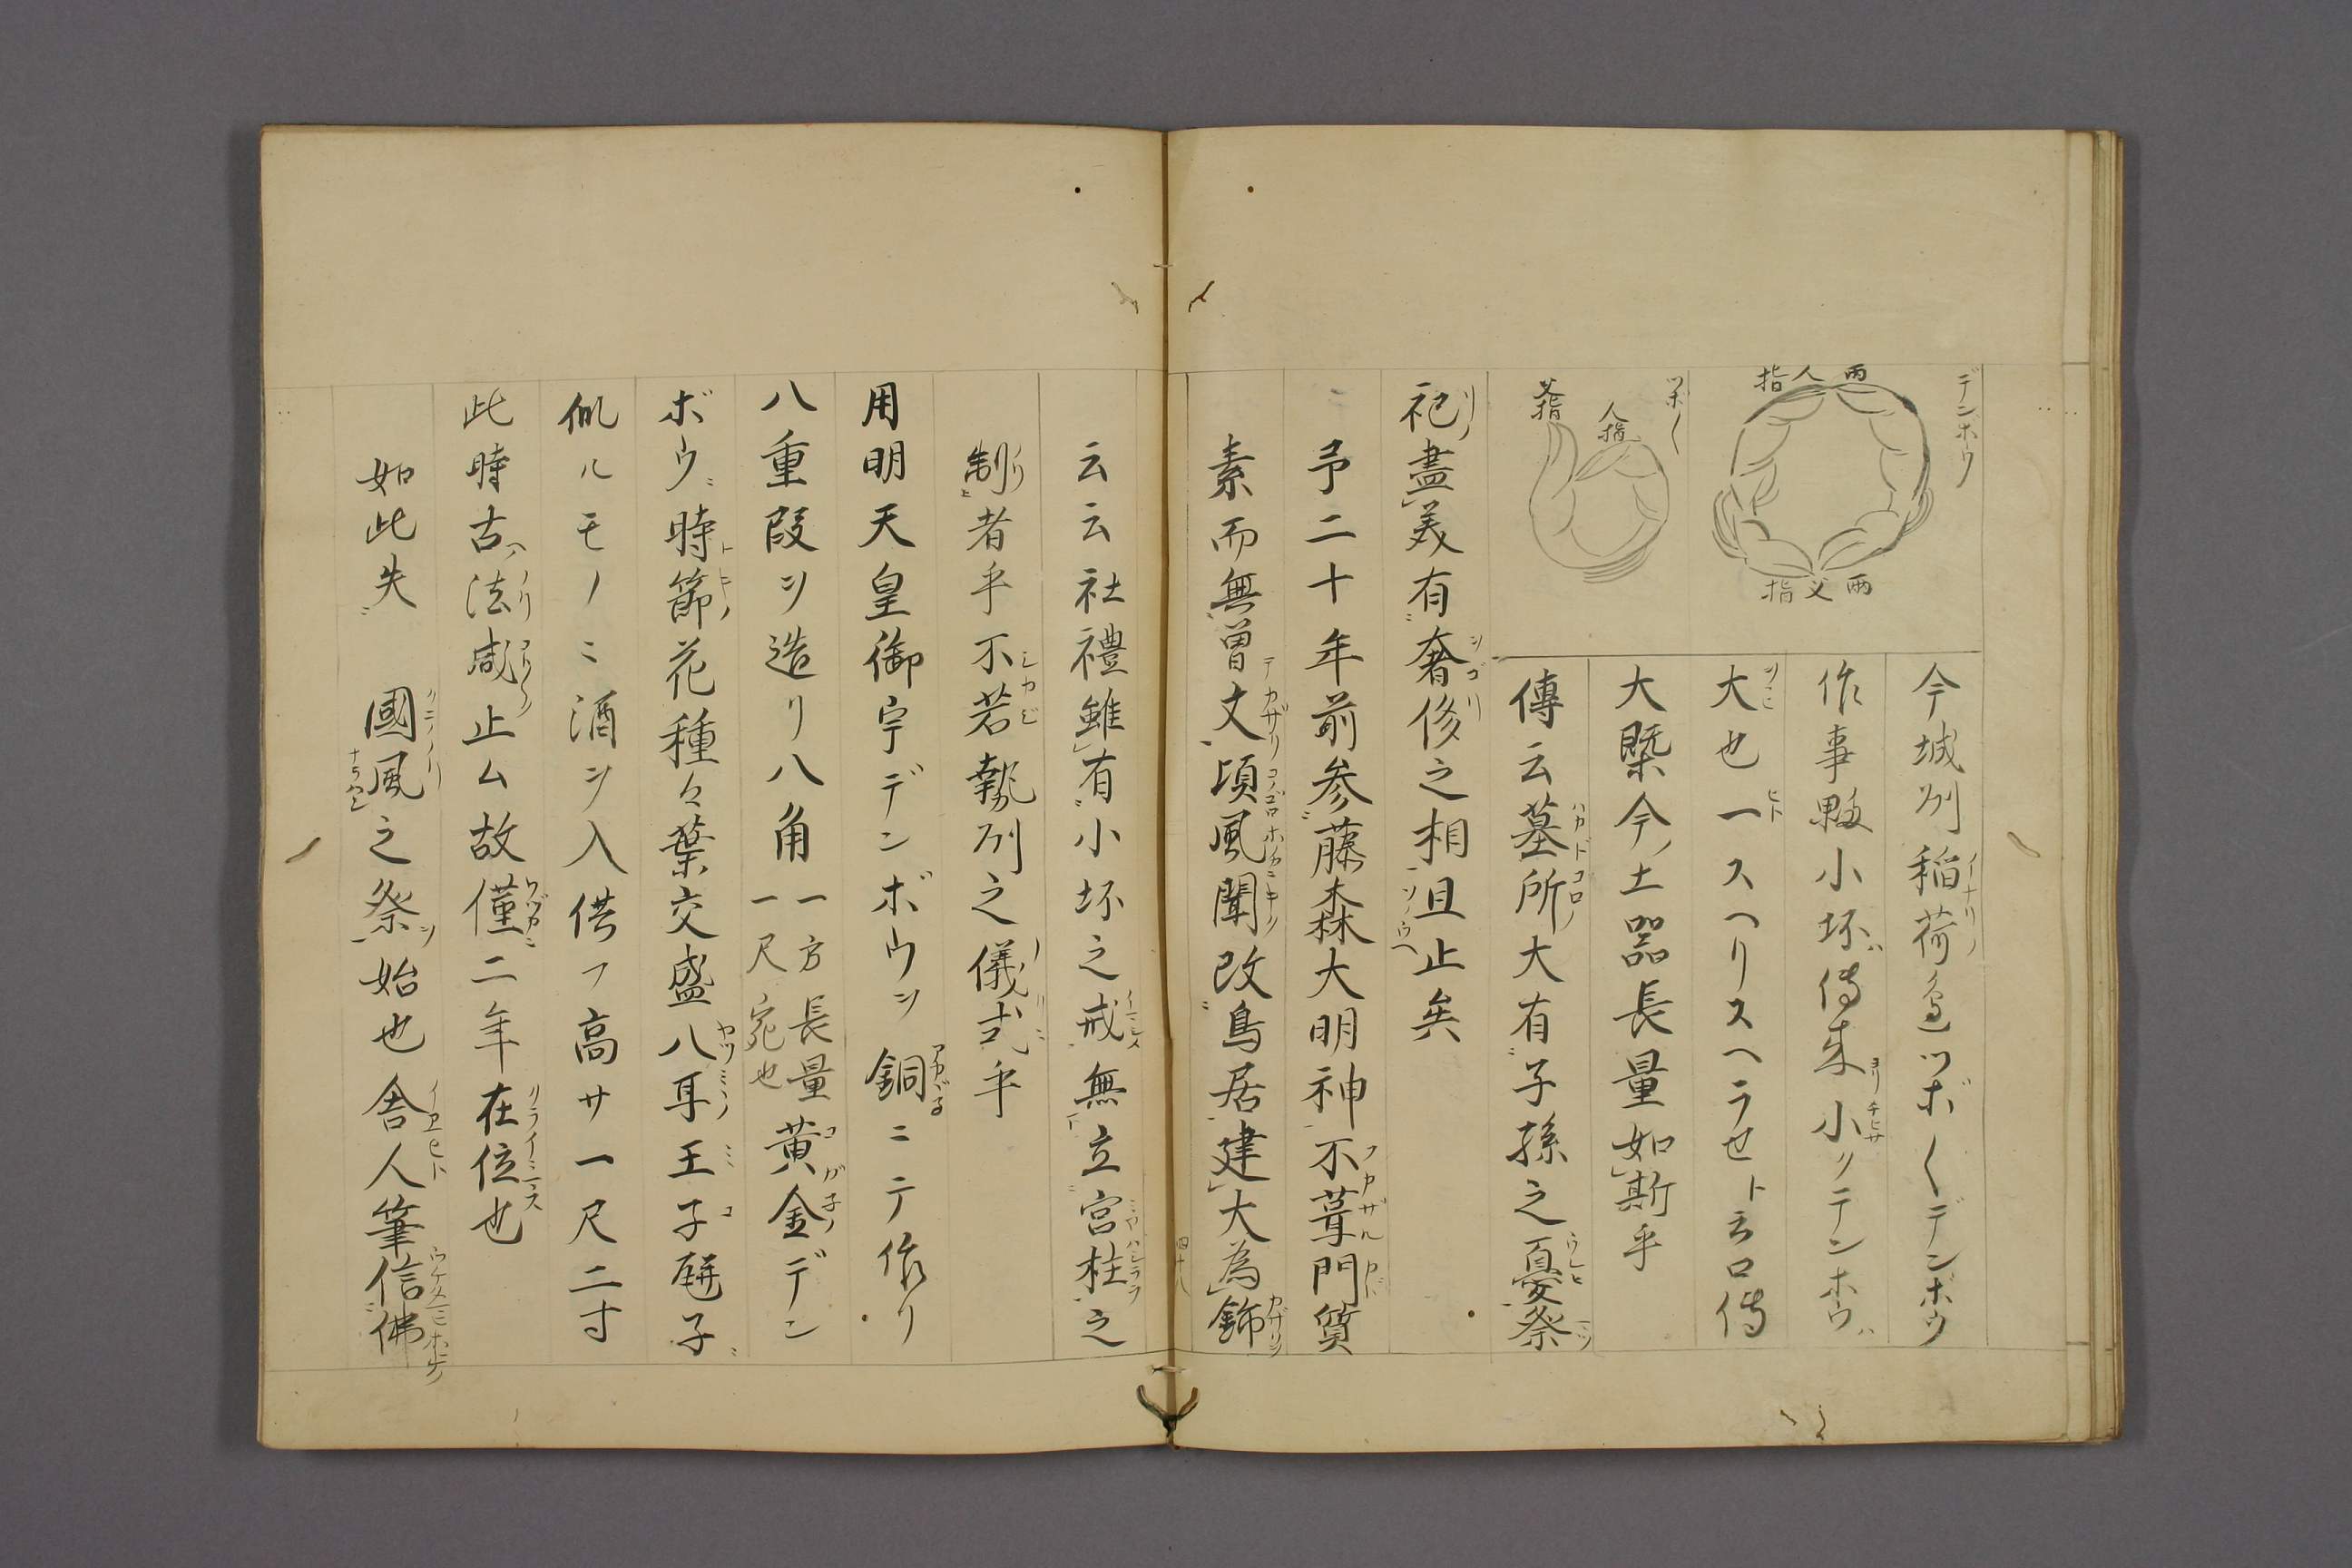 デンホウ
両人指
両父指
ツボ〱
人指
父指
今城州稲荷邉ツボ〱デンボウ
作事夥小坏ハ傳来小リテンホウハ
大也一スヘリスヘラせト云口傳
大槩今ノ土器長量如斯乎
傳云墓所大有子孫之憂祭
祀盡美有奢侈之相且止矣
予二十年前参藤森大明神不葺門質
素而無曽文頃風聞改鳥居建大為餝
四十八
云云社禮雖有小坏之戒無立宮柱之
制者乎不若執列之儀式乎
用明天皇御宇デンボウヲ銅ニテ作リ
八重段ヲ造リ八角一方長量一尺宛也黄金デン
ボウ時節花種々葉交盛八耳王子瓶子
似ルモノニ酒ヲ入供フ高サ一尺二寸
此時古法咸止ム故僅二年在位也
如此失 國風之祭始也舎人筆信佛